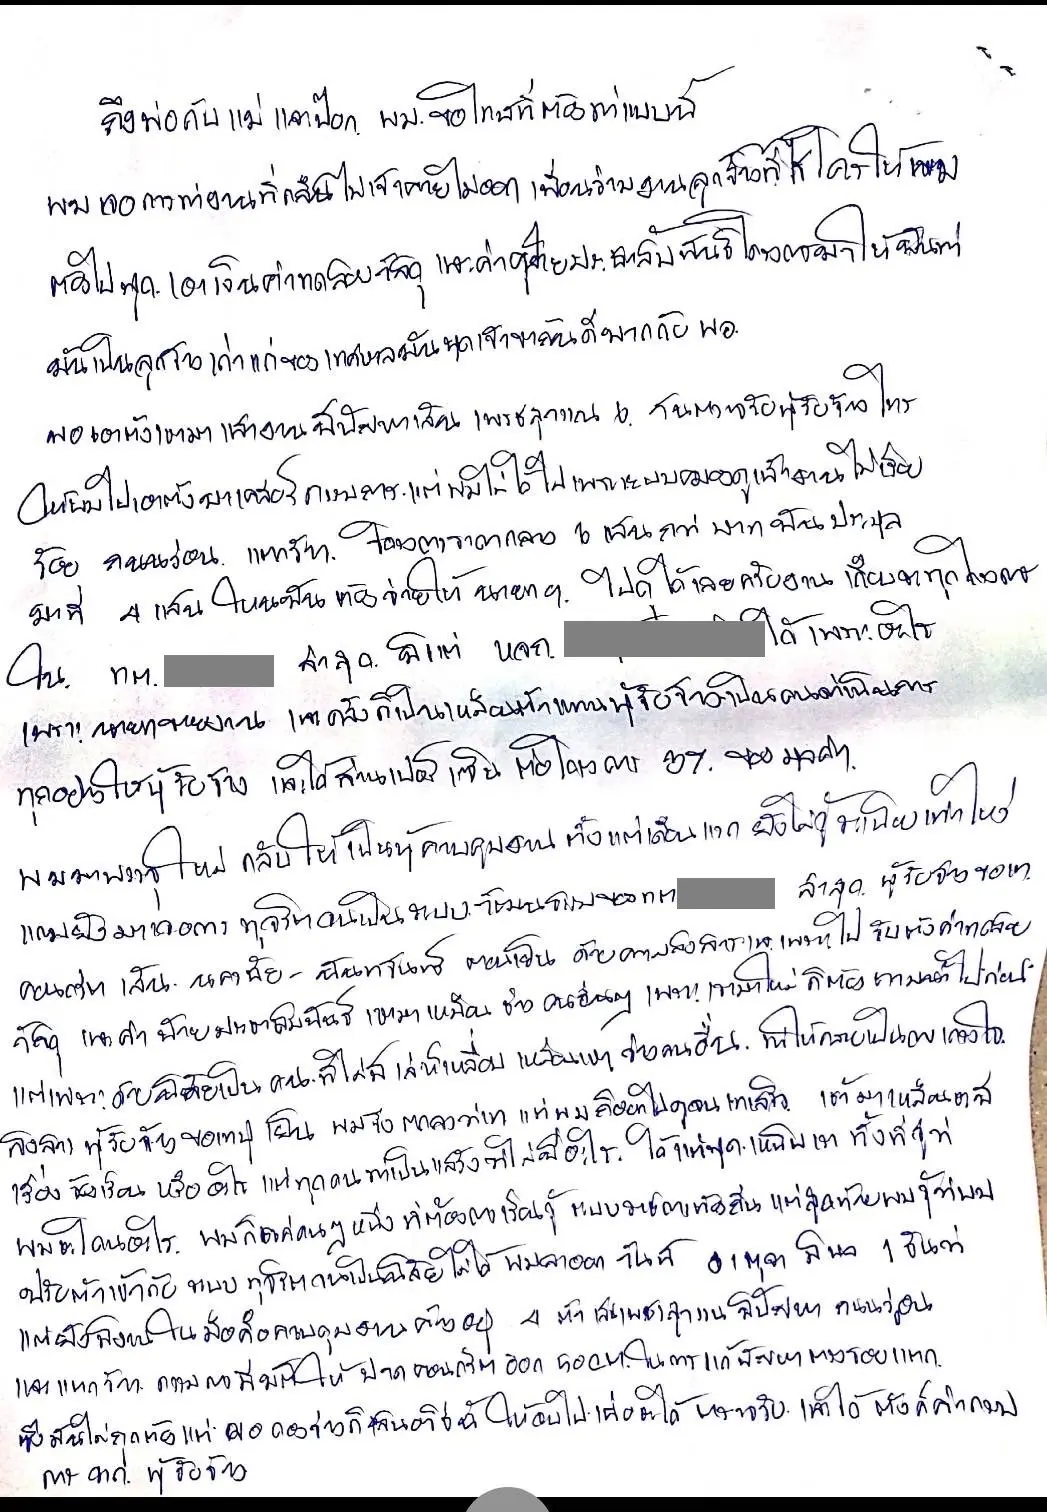 ถึงพ่อกับแม่ และป๊อก. ผม.ขอโทษที่ต้องทำแบบนี้
ผมเจอการทำงานที่กลืนไม่เข้าคายไม่ออก เพื่อนร่วมงานลูกจ้างที่ ให้ผม
ต้องไปพูด. เอาเงินค่าทดสอบวัสดุ และค่าป้ายประชาสัมพันธ์โครงการมาให้มันทำ
มันเป็นลูกจ้างเก่าแก่ของเทศบาลมันพูดเข้าขากันดีมากกับ ผอ.
ผอ เอาตังเขามา แล้วงานมีปัญหาเส้น เพชรสุวรรณ 6. กันตรวจรับผู้รับจ้างโทร
ให้ผมไปเอาตังมาเคลียร์ กรรมการ.แต่ผมไม่ได้ไปเพราะผมมองดูแล้วงานไม่เรียบ
ร้อย ถนนร่อน. แตกร้าว. ราคากลาง 6 แสน กว่า บาท มันประมูล
มาที่ 4 แสน ไหนมันต้องจ่ายให้ นายก ๆ. ไปดูได้เลยครับงาน เกือบจะทุกโครงการ
ใน. ทต. ล่าสุด. มีแต่ หจก. ได้ เพราะอะไร
เพราะนายกขายงาน และครั้งก็เป็นเหมือนตัวแทนผู้รับจ้างเป็นคนดำเนินการ
ทุกอย่างให้ผู้รับจ้าง และได้ส่วนเปอร์เซ็น ต่อโครงการ ของมูลค่า.
ผมมาบรรจุใหม่ กลับให้เป็นผู้ควบคุมงาน ตั้งแต่เดือนแรก ยังไม่รู้ระเบียบเท่าไหร่
แถมยังมาเจอการ ทุจริตจนเป็นระบบ.วัฒนธรรมของทต ล่าสุด. ผู้รับจ้างขอเท
คอนกรีต เส้น. ตอนเย็น ด้วยความสงสารและเพราะไปรับตังค่าทดสอบ
วัสดุ และค่า ป้ายประชาสัมพันธ์ เขามาเหมือน ช่าง คนอื่นๆ เพราะเรามาใหม่ก็ต้องตามน้ำไปก่อน
แต่เพราะด้วยนิสัยเป็น คน.ที่ไม่มีเล่ห์เหลี่ยม เหมือนเขา ช่างคนอื่น. ทำให้กลายเป็นความเกรงใจ.
สงสาร ผู้รับจ้างขอเทปูน ผมจึงตกลงว่าเท แต่ผมก็เข้าไปดูจนเทเสร็จ. เขามาเหมือนตอมี
เรื่อง ร้องเรียน หรืออะไร แต่ทุกคนทำเป็นแสร้งว่าไม่มีอะไร. ได้แต่พูด.เหมือนเท ทั้งที่รู้ว่า
ผมจะโดนอะไร. ผมก็แค่คนๆหนึ่ง ที่ต้องการเรียนรู้ ระบบราชการท้องถิ่น แต่สุดท้ายผมรู้ว่าผม
ปรับตัวเข้ากับ ระบบ ทุจริตจนเป็นนิสัยไม่ได้ ผมลาออก วันที่ 01 ตุลา มีผล 1 ธันวา
แต่ยังมีงานในมือคือควบคุมงานค้างอยู่ 4 ตัว เส้นเพชรสุวรรณ มีปัญหา ถนนร่อน
และแตกร้าว. กรรมการมีมติให้ ปาดคอนกรีต ออก 50ซม.ในการแก้ปัญหาตรงรอยแตก.
ซึ่งมันไม่ถูกต้องแต่ ผอ กองช่างก็เสนอวิธีนี้ ให้ผมไป เพื่อจะได้ ตรวจรับ. แล้วได้ ตังค์ค่ากรรม
การ จาก. ผู้รับจ้าง